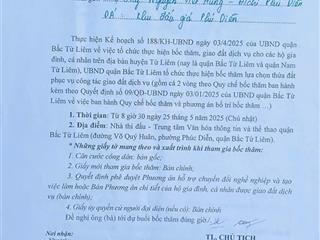 Thực hiện Kế hoạch số 188/KH-UBND ngày 03/4/2025 của UBND quận
Bắc Từ Liêm về việc tổ chức thực hiện bốc thăm, giao đất dịch vụ cho các hộ gia
đình, cá nhân trên địa bàn huyện Từ Liêm (nay là quận Bắc Từ Liêm và quận Nam
Từ Liêm), UBND quận Bắc Từ Liêm tổ chức thực hiện bốc thăm lựa chọn thửa đất
phục vụ công tác giao đất dịch vụ (gồm cả 2 vòng theo Quy chế bốc thăm ban hành
kèm theo Quyết định số 09/QĐ-UBND ngày 03/01/2025 của UBND quận Bắc
Từ Liêm về việc ban hành Quy chế bốc thăm và phương án bố trí bốc thăm ...)
1. Thời gian: Từ 8 giờ 30 ngày 25 tháng 5 năm 2025 (Chủ nhật)
2. Địa điểm: Nhà thi đấu - Trung tâm Văn hóa thông tin và thể thao quận
Bắc Từ Liêm (đường Võ Quý Huân, phường Phúc Diễn, quận Bắc Từ Liêm).
* Những giấy tờ mang theo và xuất trình khi tham gia bốc thăm:
1. Căn cước công dân: bản gốc;
2. Giấy mời tham gia bốc thăm: Bản chính;
3. Quyết định phê duyệt Phương án hỗ trợ chuyển đổi nghề nghiệp và tạo
việc làm hoặc Bản Phương án chi tiết của hộ gia đình, cá nhân được giao đất dịch
vụ (bản chính);
4. Giấy ủy quyền cử người đại diện (nếu có): Bản chính
Đề nghị ông (bà) tới dự buổi bốc thăm đúng giờ./.
Nơi nhận:
TL. CHỦ TỊCH